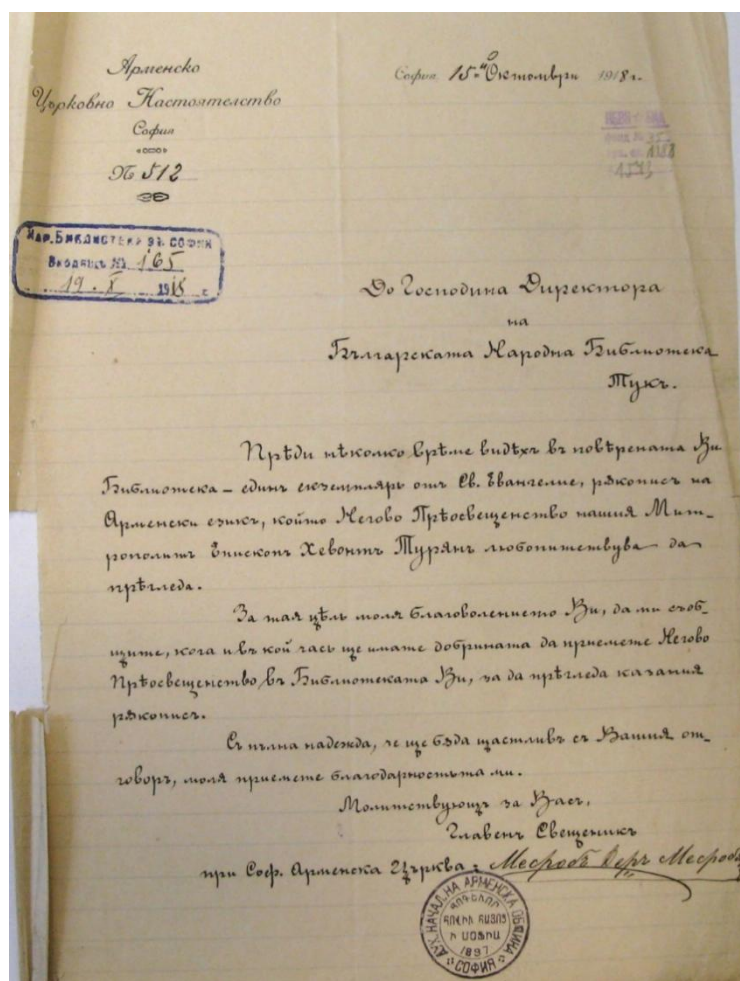 Арменско
Църковно Настоятелство
София
№ 512
София 15-й Октомври 1918 г.
НАР. БИБЛИОТЕКА ВЪ СОФИЯ
Входящъ № 165
19. X 1918 г.
До Господина Директора
на
Българската Народна Библиотека
Тукъ.
Прѣди нѣколко врѣме видѣхъ въ повѣрената Ви
Библиотека – единъ екземпляръ отъ Св. Евангелие, рѫкописъ на
Арменски езикъ, който Негово Прѣосвещенство нашия Мит-
рополитъ Епископъ Хевонтъ Турянъ любопитствува да
прѣгледа.
За тая цѣль моля благоволението Ви, да ми съоб-
щите, кога и въ кой часъ ще имате добрината да приемете Негово
Прѣосвещенство въ Библиотеката Ви, за да прѣгледа казания
рѫкописъ.
Съ пълна надежда, че ще бѫда щастливъ съ Вашия от-
говоръ, моля приемете благодарностьта ми.
Молитствующъ за Васъ,
Главенъ Свещеникъ
при Соф. Арменска Църква: Месробъ Деръ Месробя
ДУХ. НАЧАЛ. НА АРМЕНСКА ОБЩИНА
1897
СОФИЯ